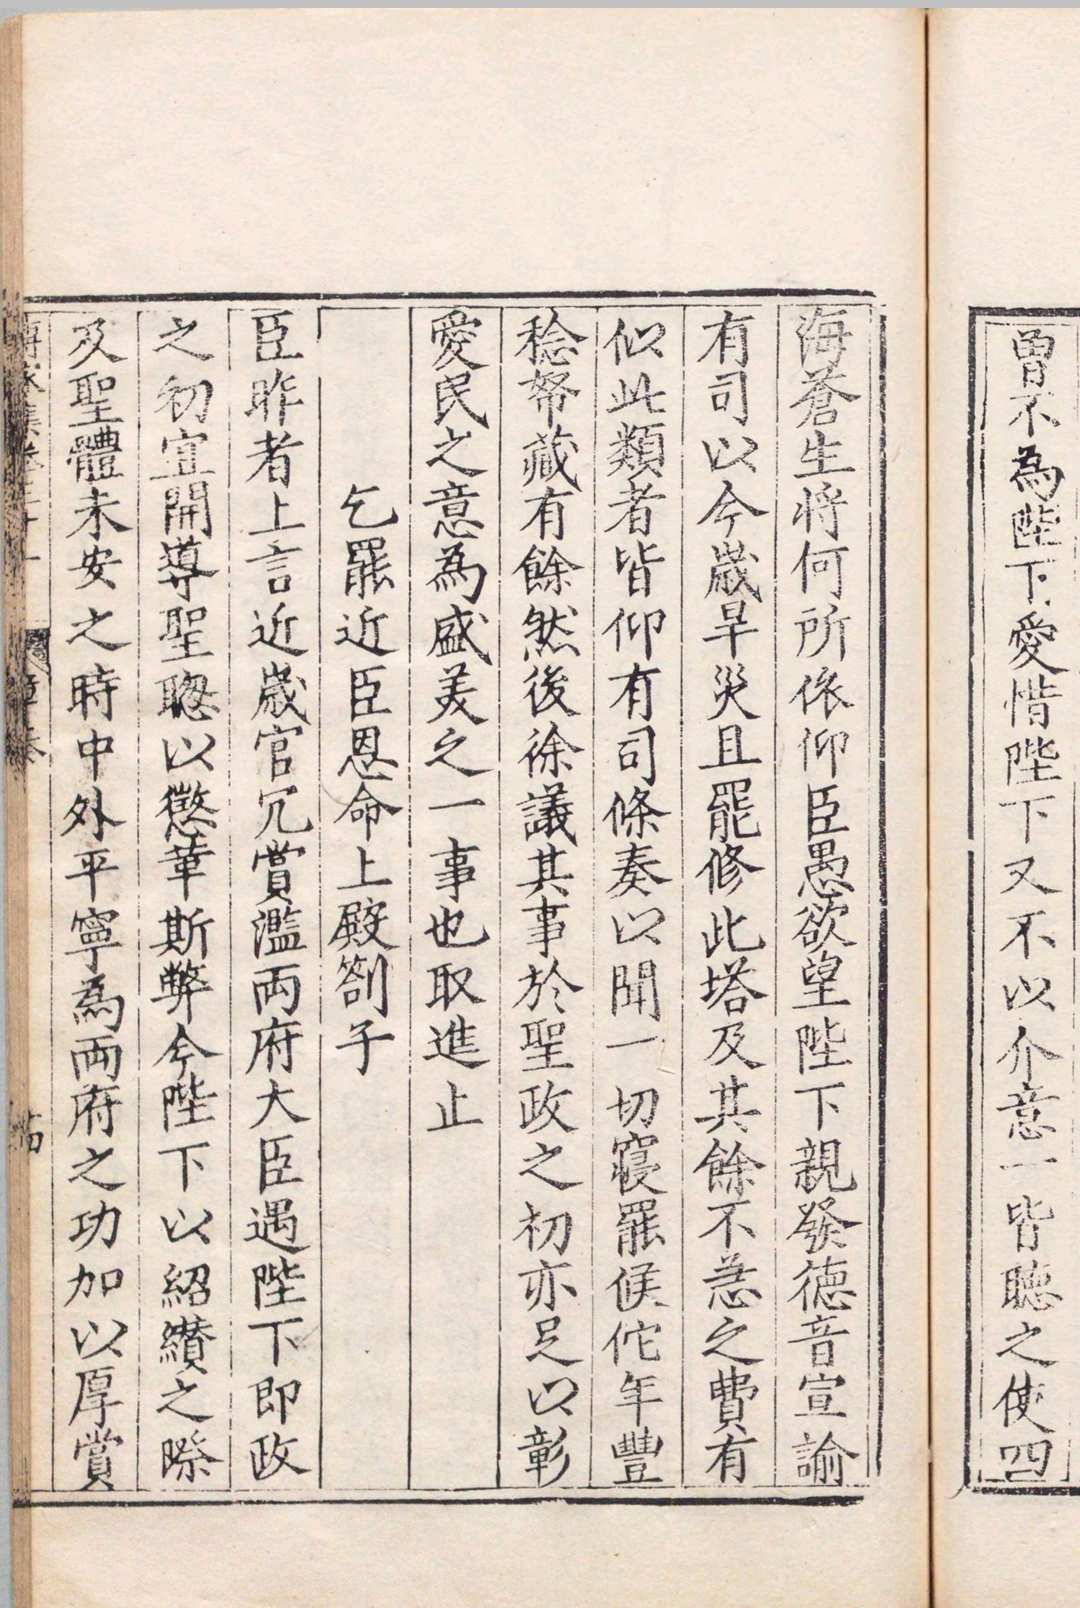 曾不為陛下愛惜陛下又不以介意一皆聽之使四
海蒼生將何所依仰臣愚欲望陛下親發德音宣諭
有司以今歲旱災且罷修此塔及其餘不急之費有
似此類者皆仰有司條奏以聞一切寢罷候佗年豐
稔帑藏有餘然後徐議其事於聖政之初亦足以彰
愛民之意為盛美之一事也取進止
乞罷近臣恩命上殿劄子
臣昨者上言近歲官冗賞濫兩府大臣遇陛下即政
之初宜開導聖聰以懲革斯弊今陛下以紹纘之際
及聖體未安之時中外平寧為兩府之功加以厚賞